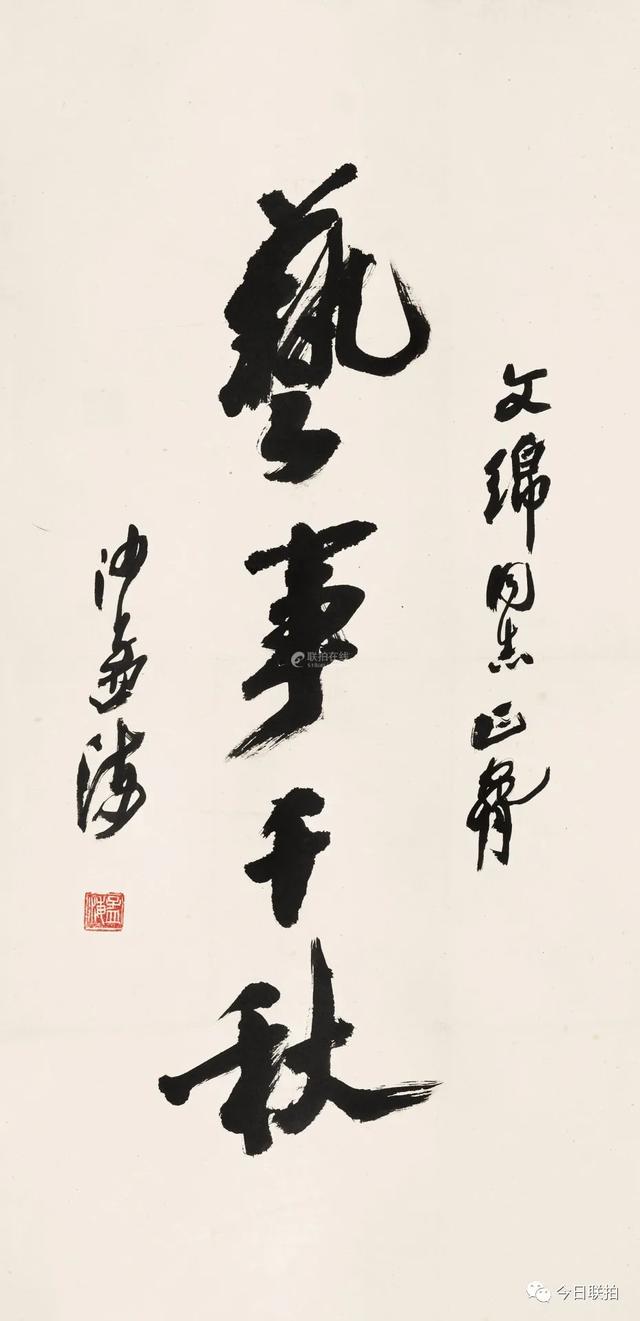 文 同志正
藝事千秋
沙孟海
孟海
联拍在线
今日联拍